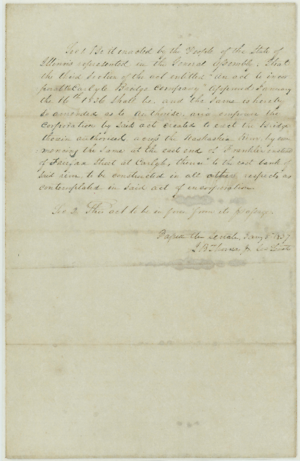 Sec 1 Be it enacted by the People of the State of
Illinois represented in the General Assembly, That
the third section of the act entitled "An act to incor
porate Carlyle Bridge Company" Approved January
the 16th 1836 shall be, and the same is hereby
so amended as to authorize and empower the
Corporation by said act created to erect the bridge
therein authorized across the Kaskaskia River, by com
mencing the same at the east end of Franklin instead
of Fairfax Street at Carlyle, thence to the east bank of
said river to be constructed in all other respects as
contemplated in said act of incorporation
Sec 2. This act to be in force from its passage.
Passed the Senate, Jany 1837